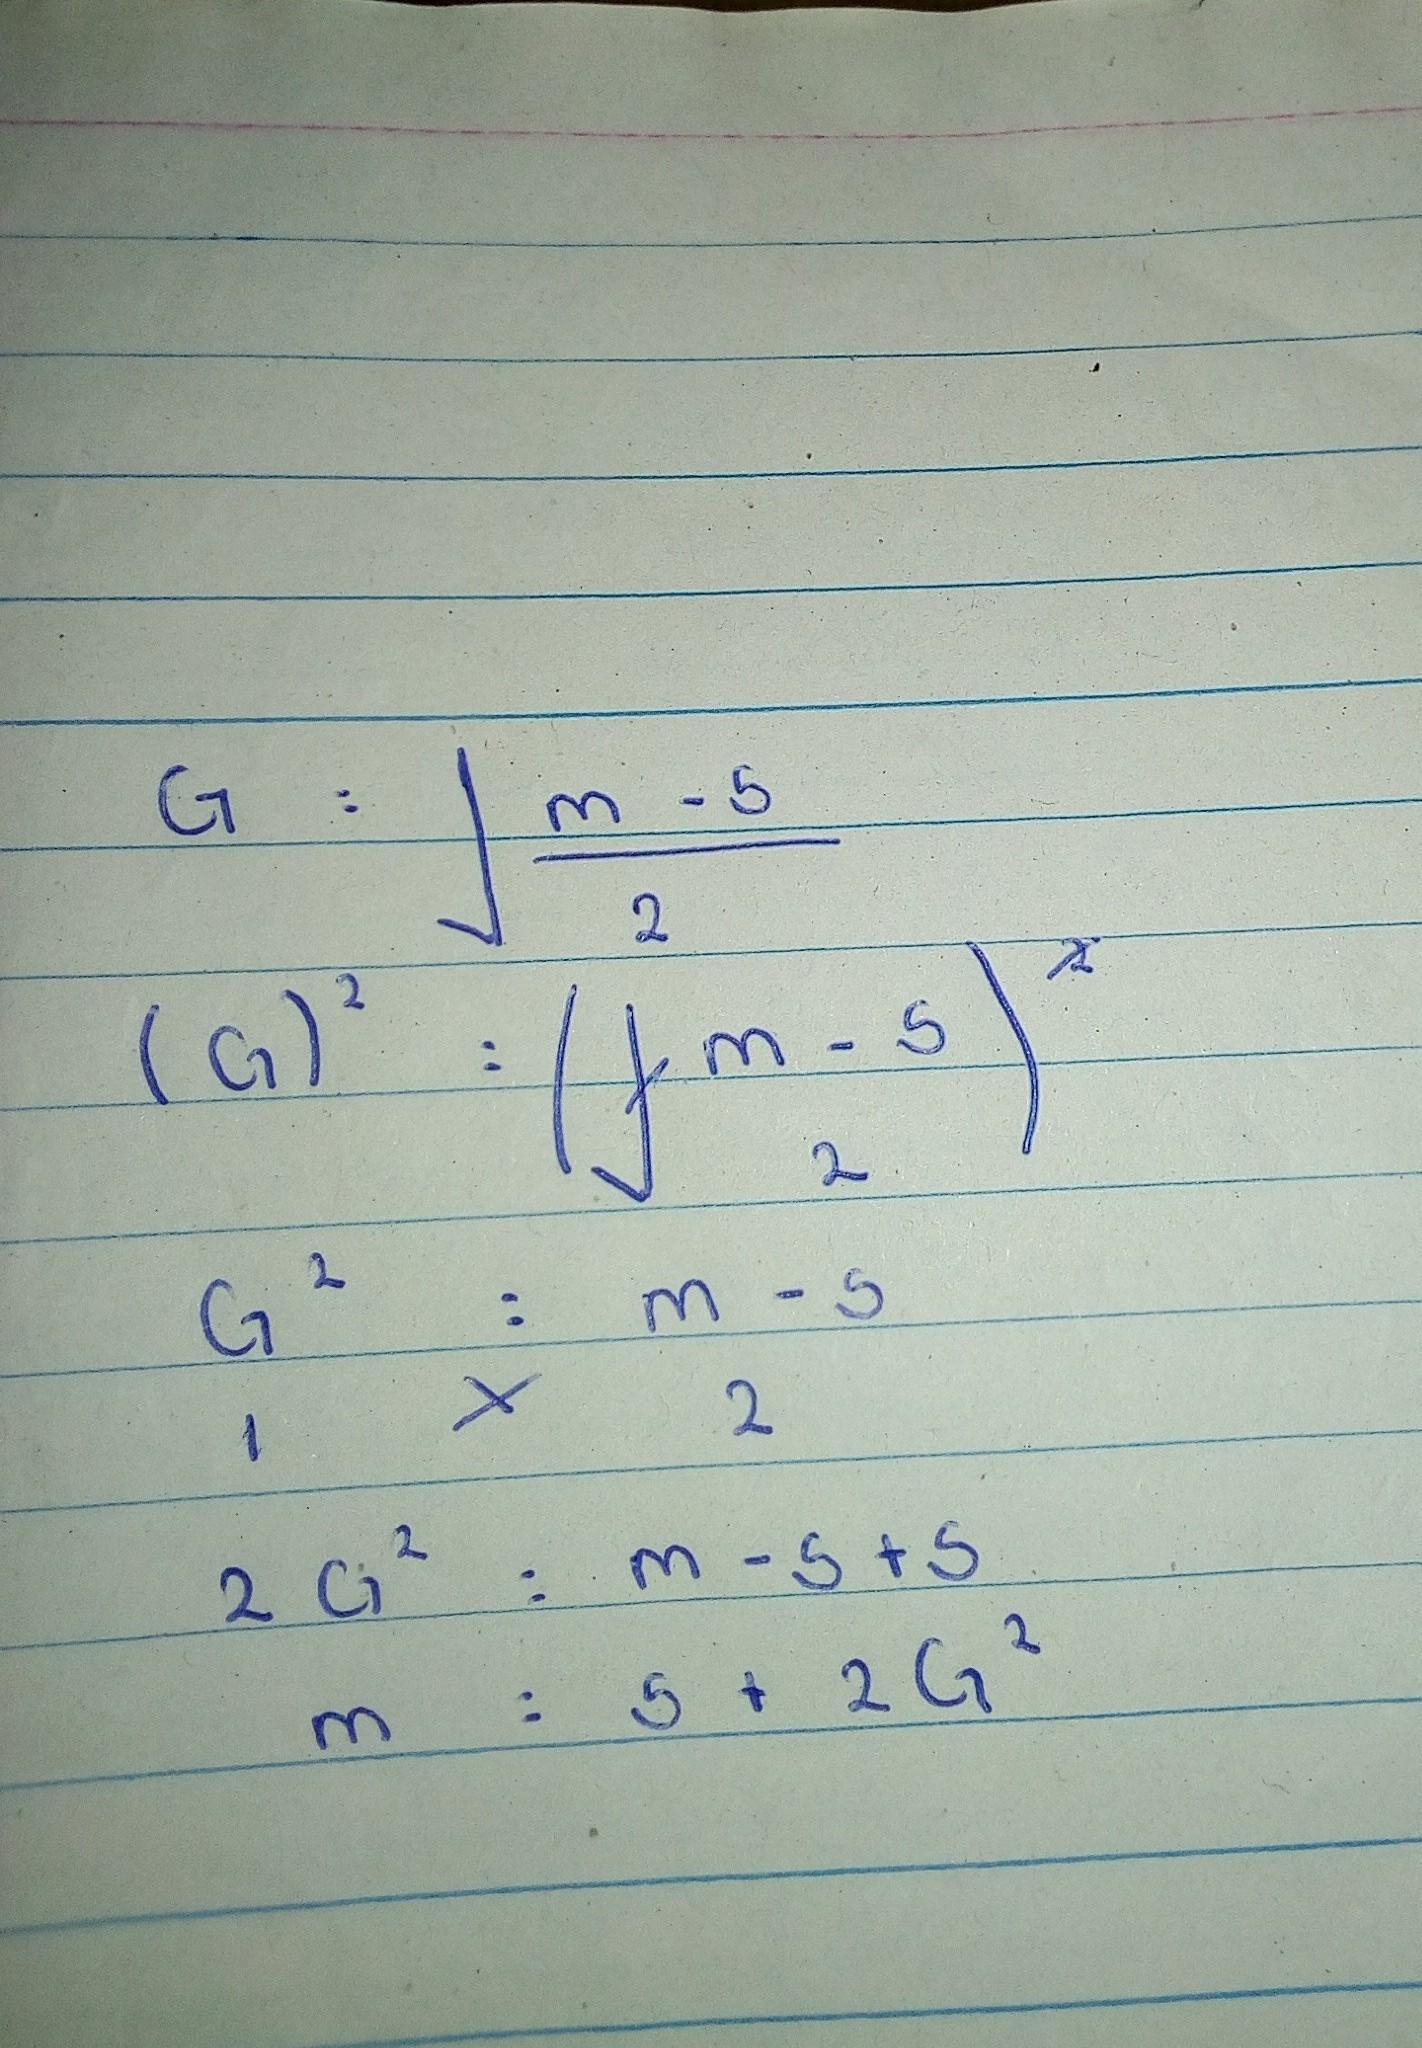 G = √ m - 5
2
(G)² = (√ m - 5)²
2
G² = m - 5
1 × 2
2G² = m - 5 + 5
m = 5 + 2G²